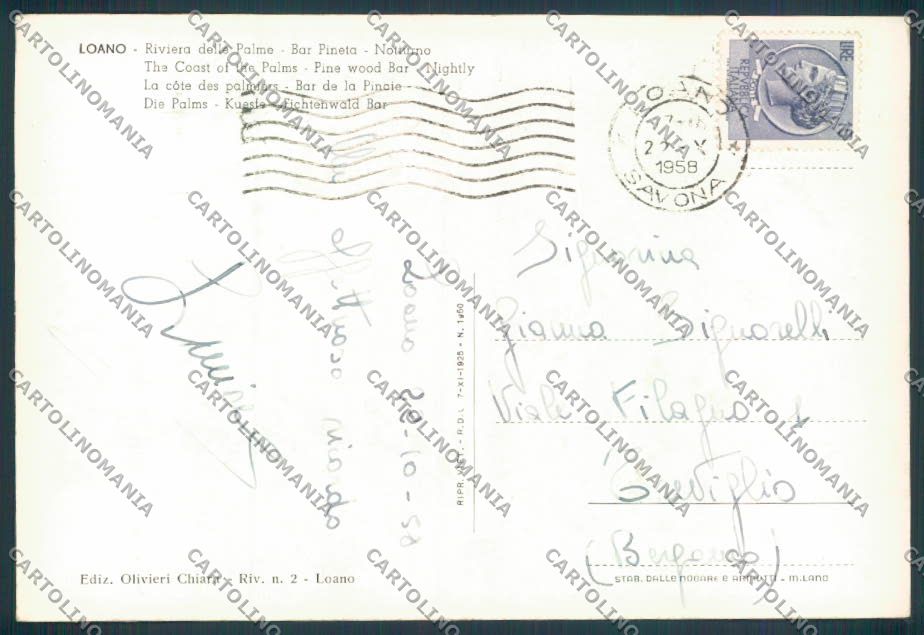 LOANO - Riviera delle Palme - Bar Pineta - Notturno
The Coast of the Palms - Pine wood Bar - Nightly
La côte des palmiers - Bar de la Pinaie
Die Palms - Kueste - Fichtenwald Bar
LIRE
LOANO
1958
SAVONA
Loano 22-10-58
Affettuoso ricordo
Signorina
Gianna Signorelli
Viale Filagno 1
Treviglio
(Bergamo)
RIPR. VIET. - R.D.L. 7-XI-1925 - N. 1950
Ediz. Olivieri Chiara - Riv. n. 2 - Loano
STAB. DALLE NOGARE E ARMETTI - MILANO
CARTOLINOMANIA